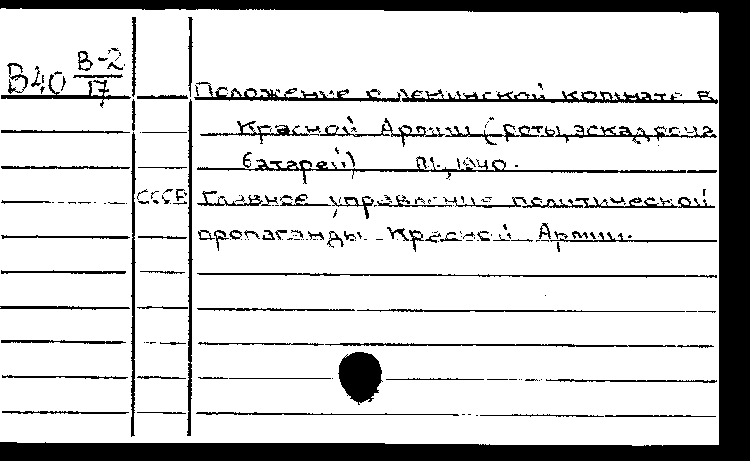 В40 В-2
17
Положение о ленинской комнате в
Красной Армии (роты, эскадрона
батареи) М., 1940.
СССР Главное управление политической
пропаганды Красной Армии.